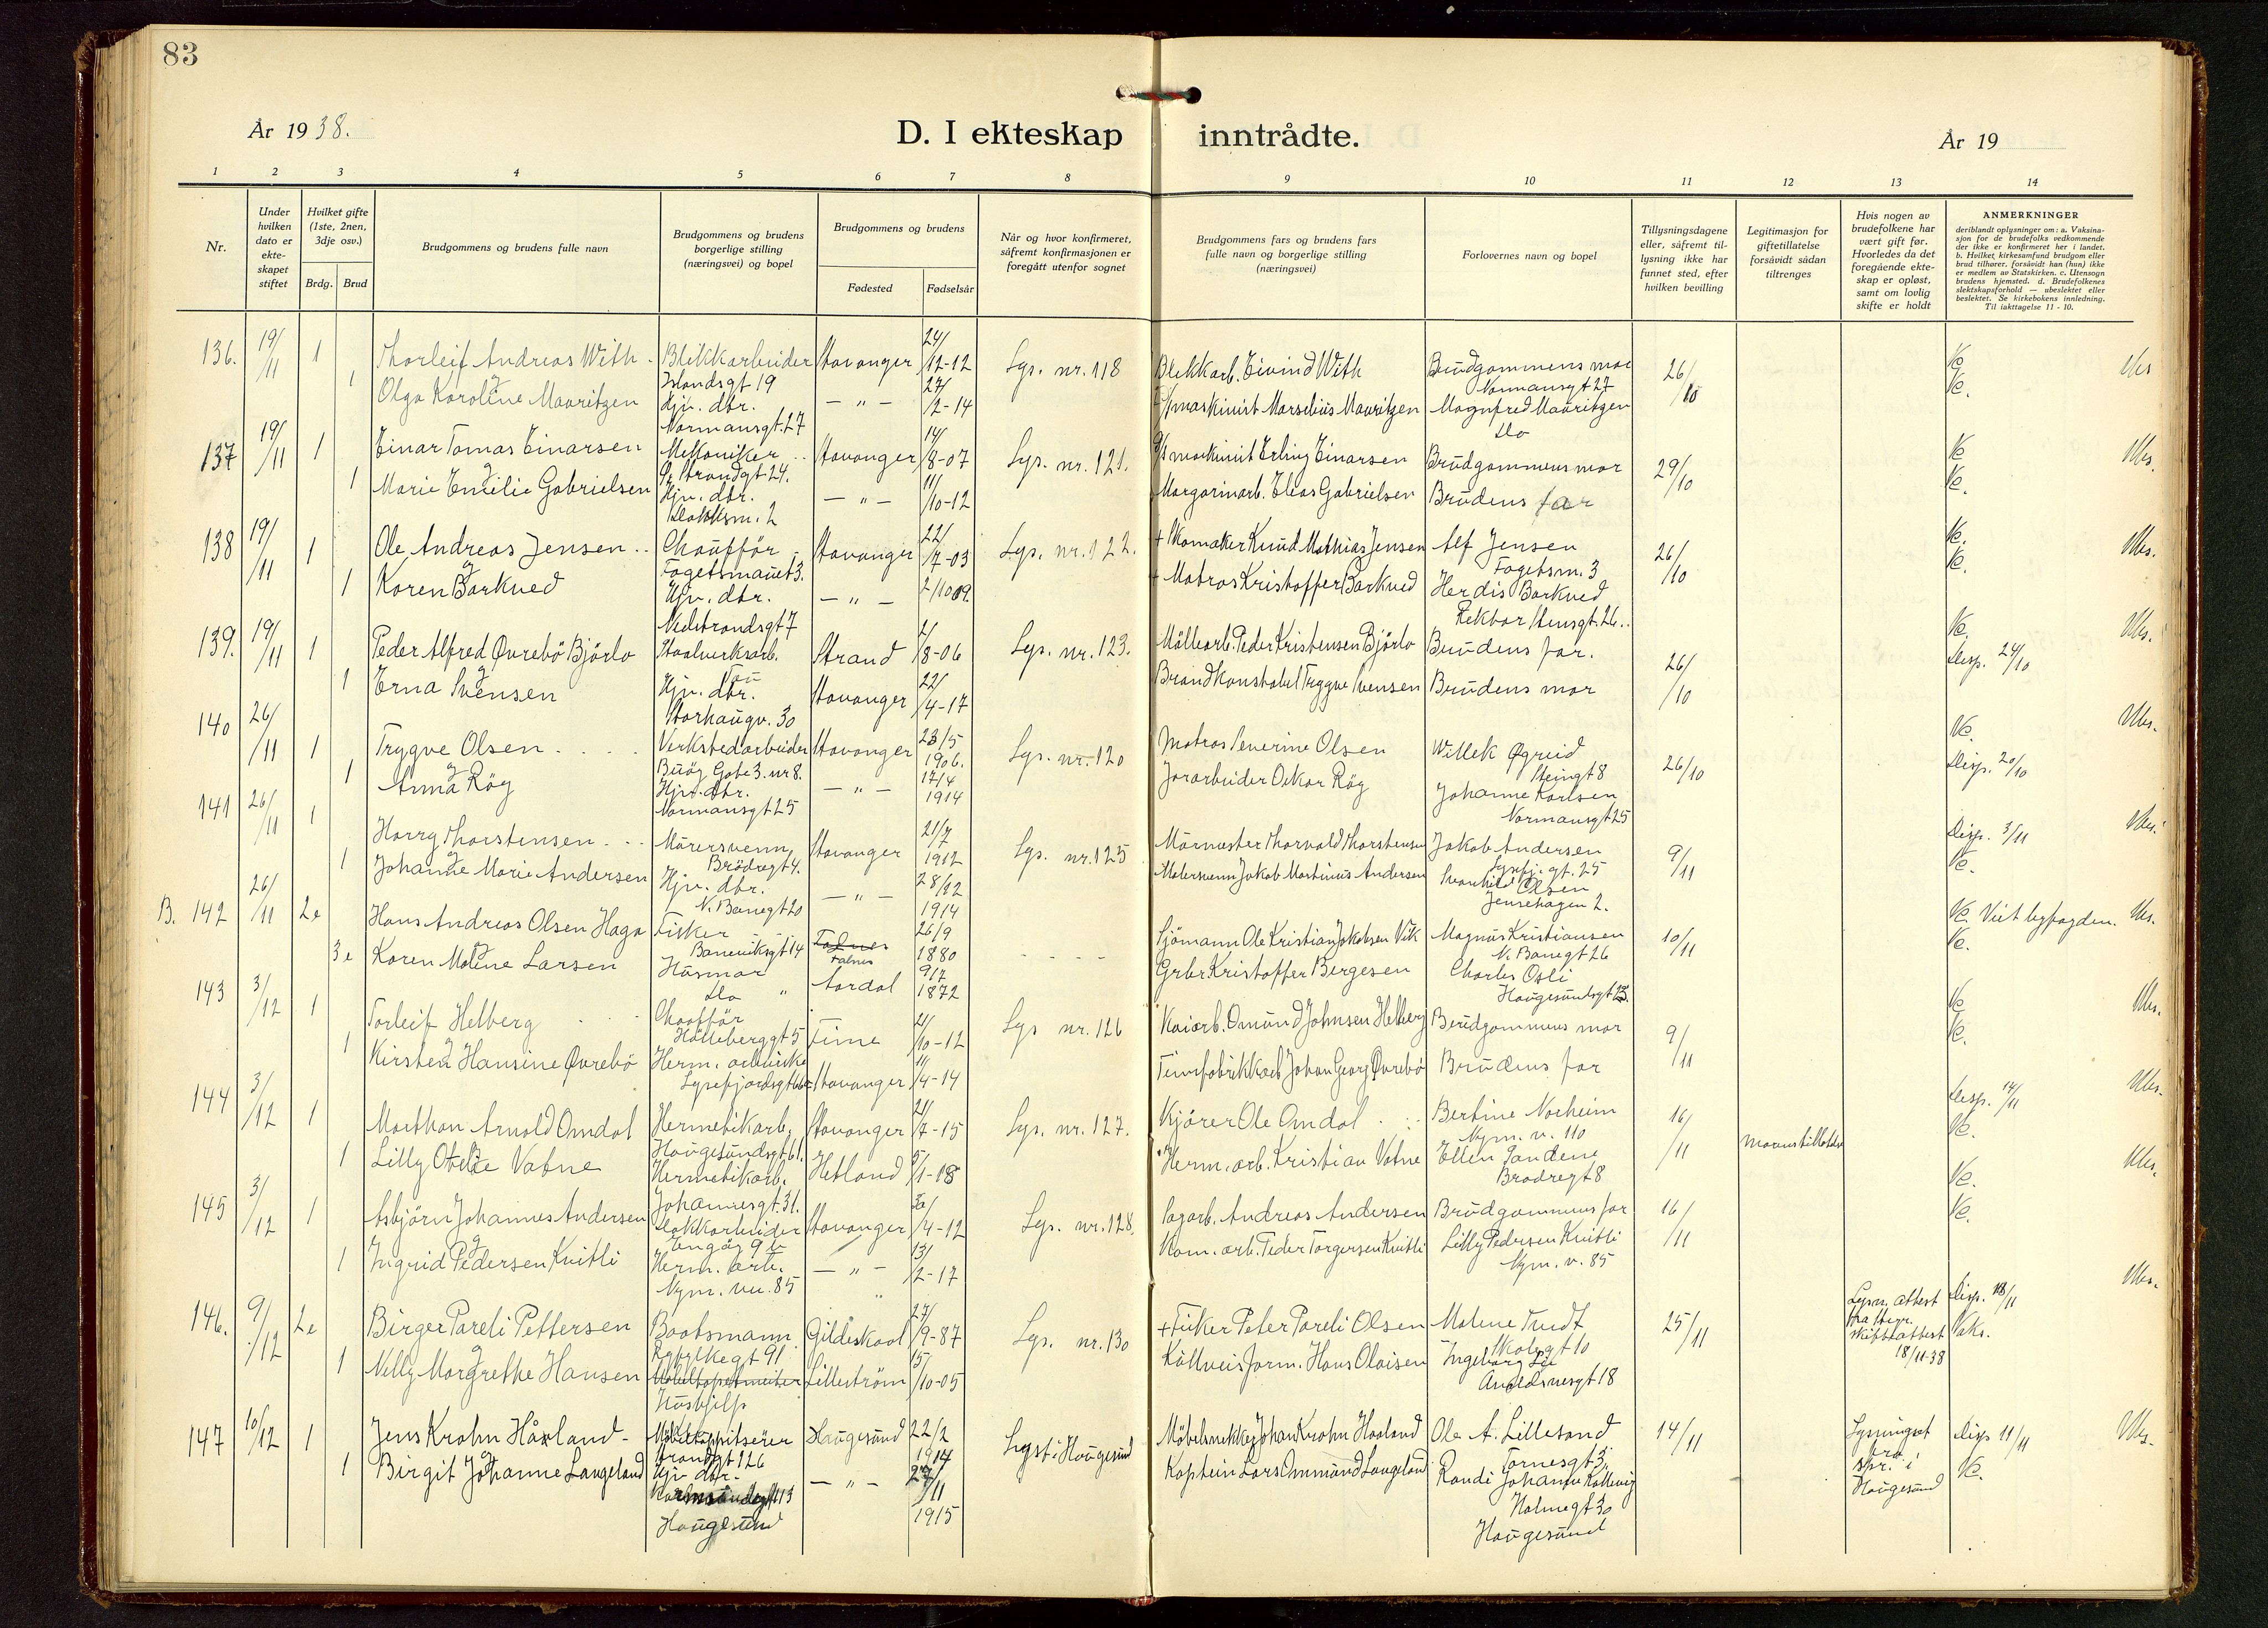 83
År 1938.
D. I ekteskap inntrådte.
År 19
1 2 3 4 5 6 7 8 9 10 11 12 13 14
Nr.
Under hvilken dato er ekte-skapet stiftet
Hvilket gifte (1ste, 2nen, 3dje osv.)
Brdg. Brud
Brudgommens og brudens fulle navn
Brudgommens og brudens borgerlige stilling (næringsvei) og bopel
Brudgommens og brudens
Fødested Fødselsår
Når og hvor konfirmeret, såfremt konfirmasjonen er foregått utenfor sognet
Brudgommens fars og brudens fars fulle navn og borgerlige stilling (næringsvei)
Forlovernes navn og bopel
Tillysningsdagene eller, såfremt til-lysning ikke har funnet sted, efter hvilken bevilling
Legitimasjon for giftetillatelse forsåvidt sådan tiltrenges
Hvis nogen av brudefolkene har vært gift før. Hvorledes da det foregående ekte-skap er opløst, samt om lovlig skifte er holdt
ANMERKNINGER
deriblandt oplysninger om: a. Vaksina-sjon for de brudefolks vedkommende der ikke er konfirmeret her i landet. b. Hvilket kirkesamfund brudgom eller brud tilhører, forsåvidt han (hun) ikke er medlem av Statskirken. c. Utensogn brudens hjemsted. d. Brudefolkenes slektskapsforhold — ubeslektet eller beslektet. Se kirkebokens innledning. Til iakttagelse 11 - 10.
136. 19/11 1 Thorleif Andreas With Blikkarbeider Stavanger 24/12-12 Lys. nr. 118 Blekkarb. Eivind With Brudgommens mor 26/10 Ve Ubs
Islandsgt 19 Normansgt 27
1 Olga Karoline Mauritzen Hjv. dtr. — " — 27/2-14 maskinist Marselius Mauritzen Magnfred Mauritzen Ve.
Normansgt. 27 do
137 19/11 1 Einar Tomas Einarsen Mekaniker Stavanger 14/8-07 Lys. nr. 121. maskinist Erling Einarsen Brudgommens mor 29/10 Ve Ubs.
Strandgt 24.
1 Marie Emilie Gabrielsen Hjv. dtr. — " — 11/10-12 Margarinarb. Elias Gabrielsen Brudens far Ve.
Slakksm. 2
138 19/11 1 Ole Andreas Jensen Chaufför Stavanger 22/7-03 Lys. nr. 122. + Skomaker Knud Mathias Jensen Alf Jensen 26/10 Ve. Ubs.
Fogetsmauet 3. Fogetsm. 3
1 Karen Barkved Hjv. dtr. — " — 2/10 09. + Matros Kristoffer Barkved Herdis Barkved Ve.
Nedstrandsgt 7 Rektor Stensgt. 26.
139. 19/11 1 Peder Alfred Øvrebö Bjørlo Staalverksarb. Strand /8-06 Lys. nr. 123. Möllearb. Peder Kristensen Bjørlo Brudens far. 26/10 Ve. Ubs.
Tau
1 Erna Svensen Hjv. dtr. Stavanger 22/4-17 Brandkonstabel Tryggve Svensen Brudens mor Disp. 24/10
Storhaugv. 30
140 26/11 1 Trygve Olsen Verkstedarbeider Stavanger 23/5 1906. Lys. nr. 120 Matros Severine Olsen Willek Øgreid 26/10 Ve. Ubs.
Buöy Gate 3. nr 8. Steingt 8
1 Anna Röy Hjv. dtr. — " — 17/4 1914 Jorarbeider Oskar Röy Johanne Karlsen Disp. 20/10
Normansgt 25 Normansgt 25
141 26/11 1 Harry Thorstensen Mürersvenn Stavanger 21/7 1912 Lys. nr. 125 Mürmester Thorvald Thorstensen Jakob Andersen 9/11 Disp. 3/11 Ubs.
Brödregt 4. Lysefj. gt. 25
1 Johanne Marie Andersen Hjv. dtr. — " — 28/12 1914 Malersvenn Jakob Martinius Andersen Svanhild Olsen Ve.
N. Banegt 20 Jensehagen 2.
B. 142 26/11 2e Hans Andreas Olsen Haga Fisker Falnes 26/9 1880 - - - - Sjömann Ole Kristian Jakobsen Vik Magnus Kristiansen 10/11 Ve. Viet byfogden. Ubs.
Baneviksgt 14 Falnes N. Banegt 26
3e Karen Malene Larsen Husmor Aardal 9/7 1872 Grbr Kristoffer Bergesen Charles Osli Ve.
do " Haugesundsgt 23.
143 3/12 1 Torleif Helberg Chaufför Time 2/10-12 Lys nr. 126 Kaiarb. Omund Johnsen Helberg Brudgommens mor 9/11 Ve Ubs.
Hölleberggt 5
1 Kirsten Hansine Øvrebö Herm. arbeiske Stavanger 11/4-14 Tinnfabrikkarb Johan Georg Øvrebö Brudens far Ve.
Lysefjordsgt
144 3/12 1 Marthon Arnold Omdal Hermetikarb. Stavanger 2/7-15 Lys. nr. 127. Kjörer Ole Omdal Bertine Norheim 16/11 Disp. 14/11 Ubs.
Haugesundsgt 61. Nym. v. 110
1 Lilly Otelie Vatne Hermetikarb. Hetland 5/1-18 Herm. arb. Kristian Vatne Ellen Sandene Ve.
Johannesgt. 31. Brödregt 8
145 3/12 1 Asbjörn Johannes Andersen Slakkarbeider Stavanger 30/4-12 Lys. nr. 128. Sagarb. Andreas Andersen Brudgommens far 16/11 Ve. Ubs.
Engöy 9
1 Ingrid Pedersen Kvitli Herm. arb. — " — 13/2-17 Kom. arb. Peder Torgersen Kvitli Lilly Pedersen Kvitli Ve.
Nym. v. 85 Nym. v. 85
146. 9/12 2e Birger Pareli Pettersen Baatsmann Gildeskaal 27/9-87 Lys. nr. 130 + Fisker Peter Pareli Olsen Malene Tundt 25/11 Lysn. attest Disp. 18/11 Ubs.
Ryfylkegt 91 Skolegt 10 skifteattest 18/11-38 Vaks.
1 Nelly Margrethe Hansen Möbeltapetmester Lilleström 15/10-05 Kullveisform. Hans Olaisen Ingeborg Lie
Hushjelp Avaldsnesgt 18
147 10/12 1 Jens Krohn Håvland Möbeltappitserer Haugesund 22/2 1914 Lyst i Haugesund Möbelsnekker Johan Krohn Haaland Ole A. Lillesand 14/11 Lysningsat. fra spr. i Haugesund Disp 11/11 Ubs.
Strandgt 126 Tornesgt 3.
1 Birgit Johanne Langeland Hjv dtr. — " — 27/11 1915 Kaptein Lars Ommund Langeland Randi Johanne Ve.
Karmsundsgt 113 Holmegt 30
Haugesund Haugesund